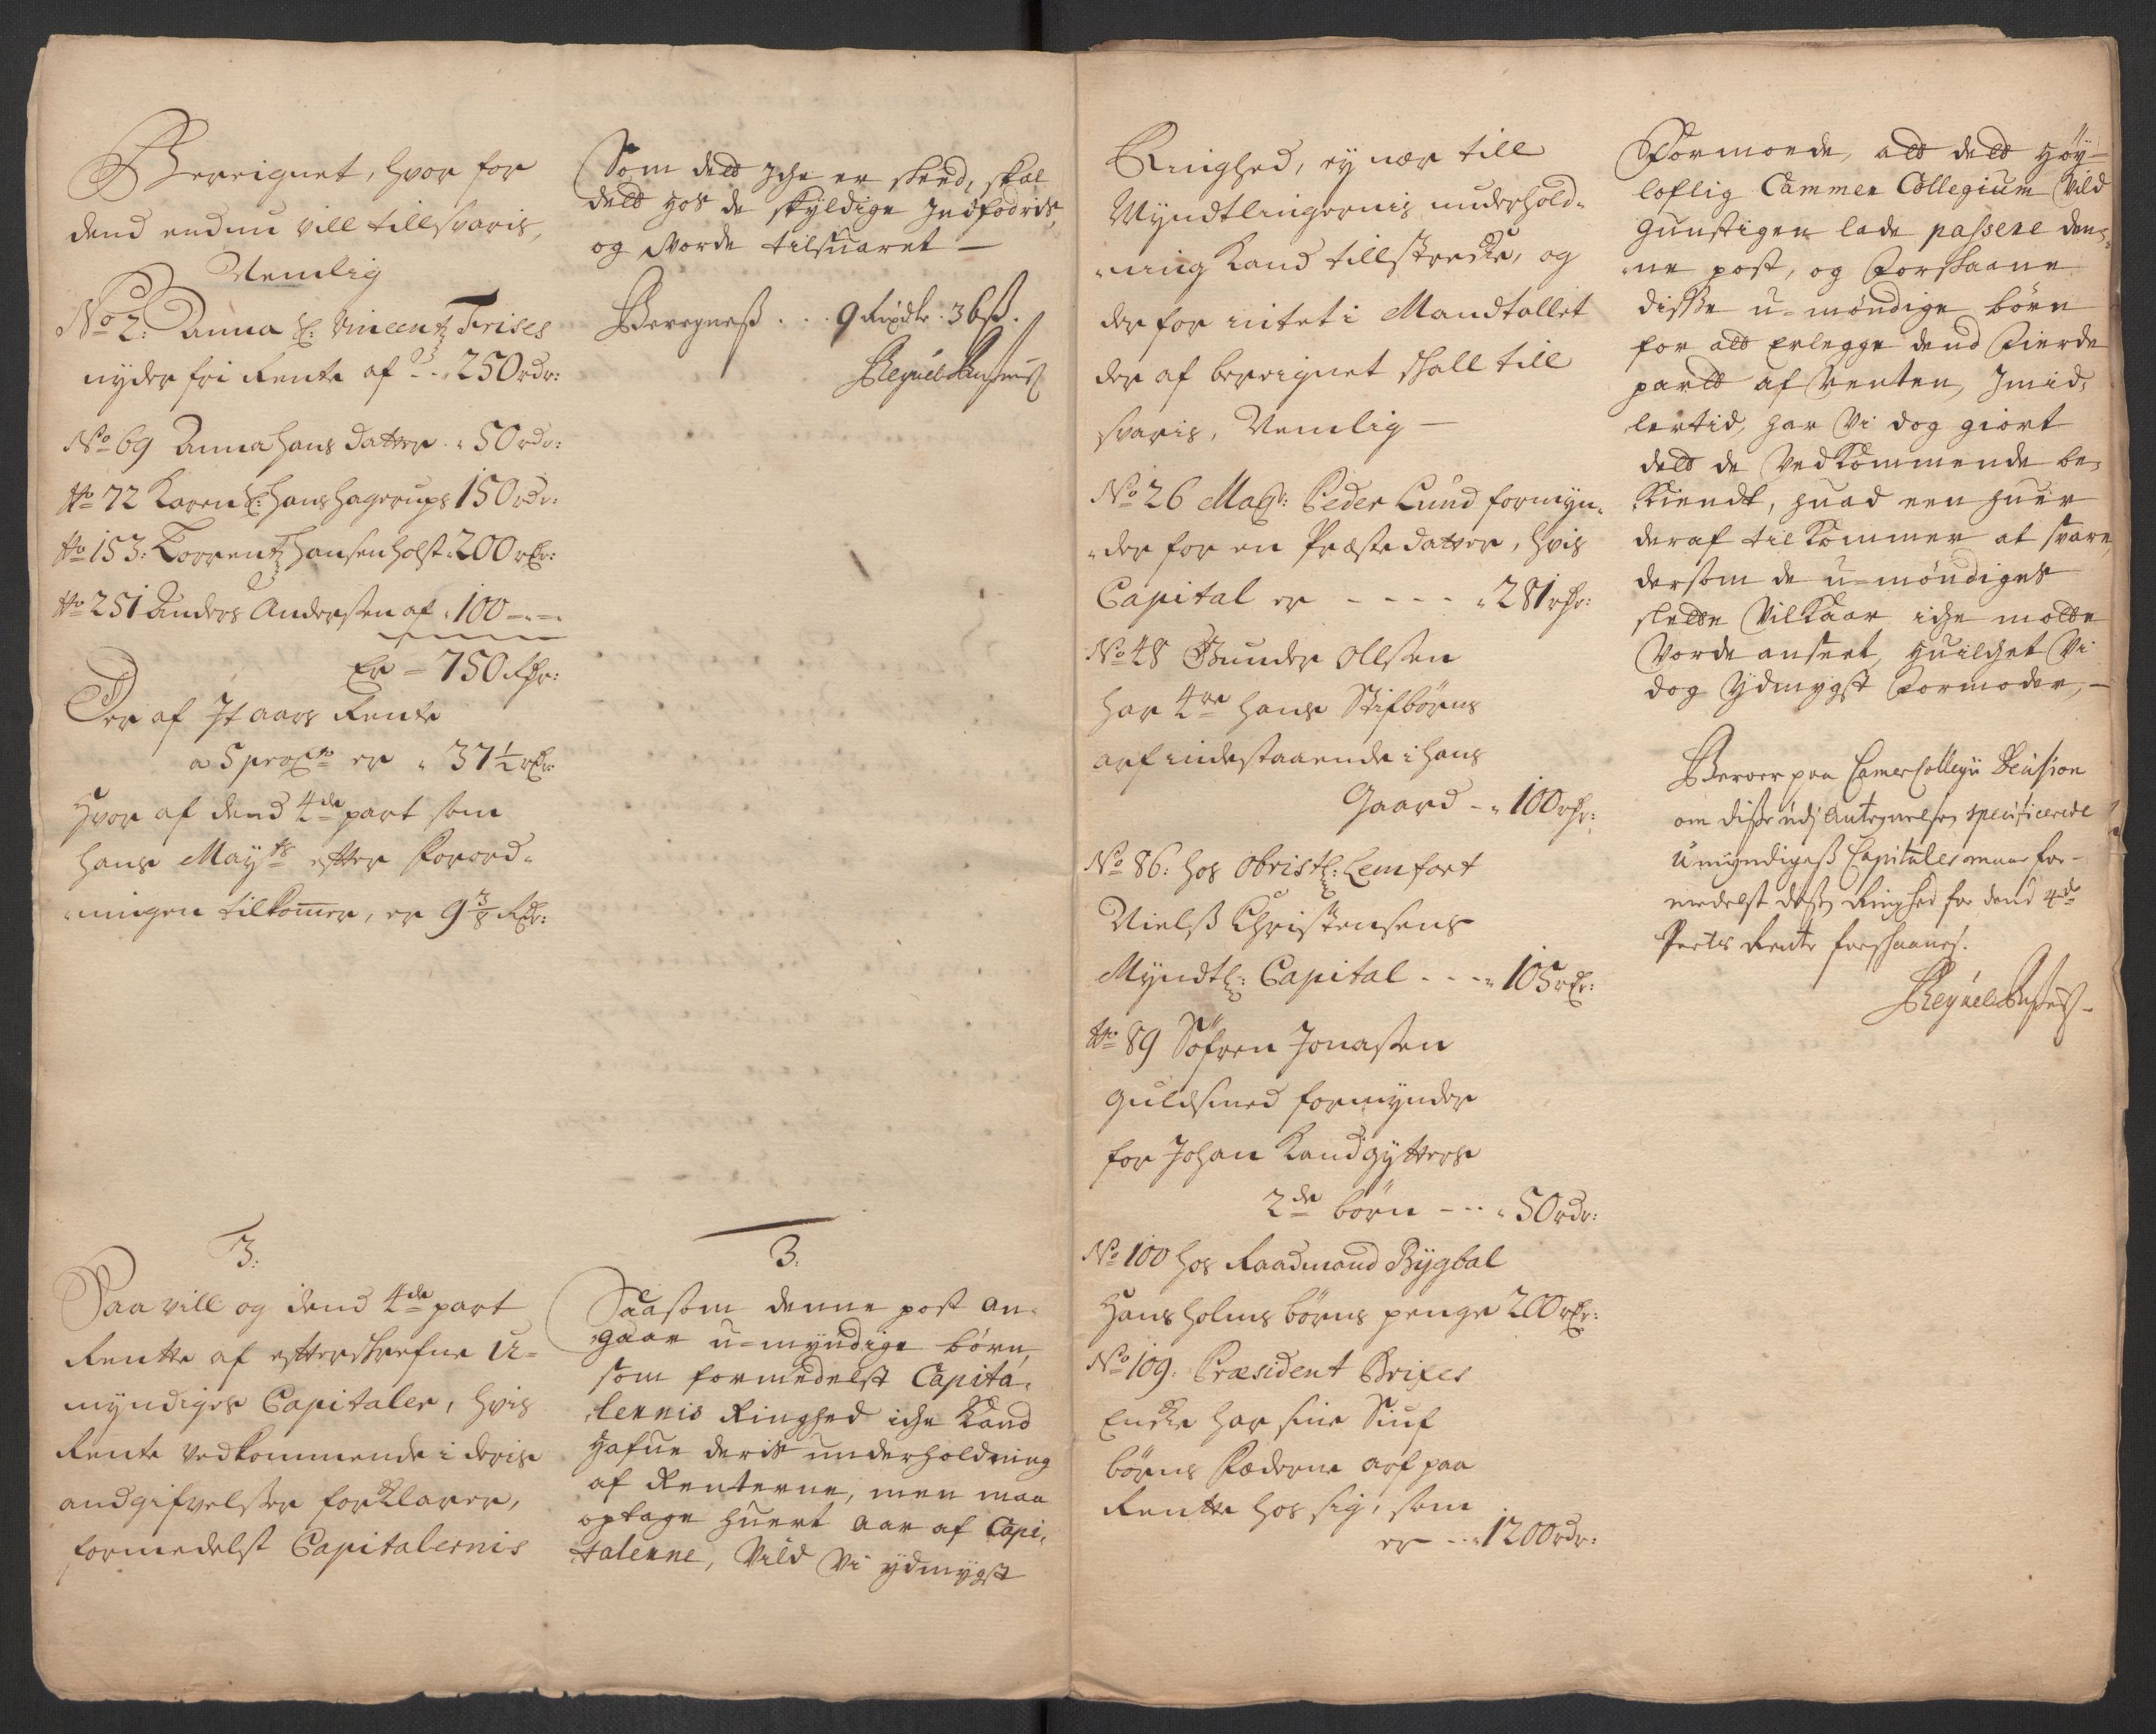 Bereignet, hvor for
dend endnu vill tillsvaris,
Nemlig
No 2: Anna Sl: Vincentz Frises
nyder fri Rente af 250 rdr:
No 69 Anna Hans datter 50 rdr:
No 72 Karen Sl: Hans Hagerups 150 rdr:
No 153: Lorrentz Hansen Holst 200 rdr:
No 251 Anders Andersen af 100 - -
Er - 750 Rdr:
Der af It aars Rente
a 5 pro Cto er 37 1/2 rdr:
Hvor af dend 4de part som
Hans Mayts efter Forord-
ningen tilkommer, er 9 3/8 Rdr:
3.
Saa vill og dend 4de part
Rentte af efterskrefne U-
myndiges Capitaler, hvis
Rente vedkommende i deris
andgifvelsser forklarer,
formedelst Capitalernis
Som dett Iche er skeed, skal
dett hos de skyldige Indfodris,
og Vorde tilsuaret -
Beregness . . . 9 Rixdlr. 36 ss.
3.
Saasom denne post an-
gaar u-myndige börn,
som formedelst Capita-
lernis Ringhed iche kand
hafue deris underholdning
af Renterne, men maa
optage huert aar af Capi-
talerne, Vild Vi ydmygst
Ringhed, ey nær till
Myndtlingernis underhold-
ning kand tillstrecke, og
der for intet i Mandtallet
der af bereignet shall till
svaris, Nemlig -
No 26 Mag: Peder Lund formyn-
der for en Præste datter, hvis
Capital er - - - - 281 rdr:
No 48 Gunder Ollsen
har 4re hans Stifbörns
arf indestaaende i hans
Gaard - 100 rdr:
No 86: hos Obristl: Lemfort
Nielss Christensens
Myndtl: Capital - - - 105 rdr:
No 89 Söfren Jonassen
Guldsmed formynder
for Johan Kandgytters
2de börn - - - 50 rdr:
No 100 hos Raadmand Bygbal
Hans Holms börns penge 200 rdr:
No 109. Præsident Brixes
Encke har sine Stuf
börns Fæderne arf paa
Rentte hos sig, som
er - - 1200 rdr:
Formoede, att dett Höy-
loflig Cammer Collegium Vild
gunstigen lade passere den-
ne post, og Forskaane
disse u-möndige börn
for att Erlegge dend Fierde
partt af Renten, Imid-
lertid, har Vi dog giort
dett de Vedkommende be-
kiendt, huad een huer
deraf tilkommer at svare,
dersom de u-möndiges
slette Vilkaar iche motte
Vorde anseet, Huilchet Vi
dog Ydmygst Formoder, -
Beroer paa Camer Collegii Decision
om disse udj Antegnelsen specificerede
Umyndigess Capitaler maae for-
medelst dess Ringhed for dend 4de
Parts Rente forskaanes.